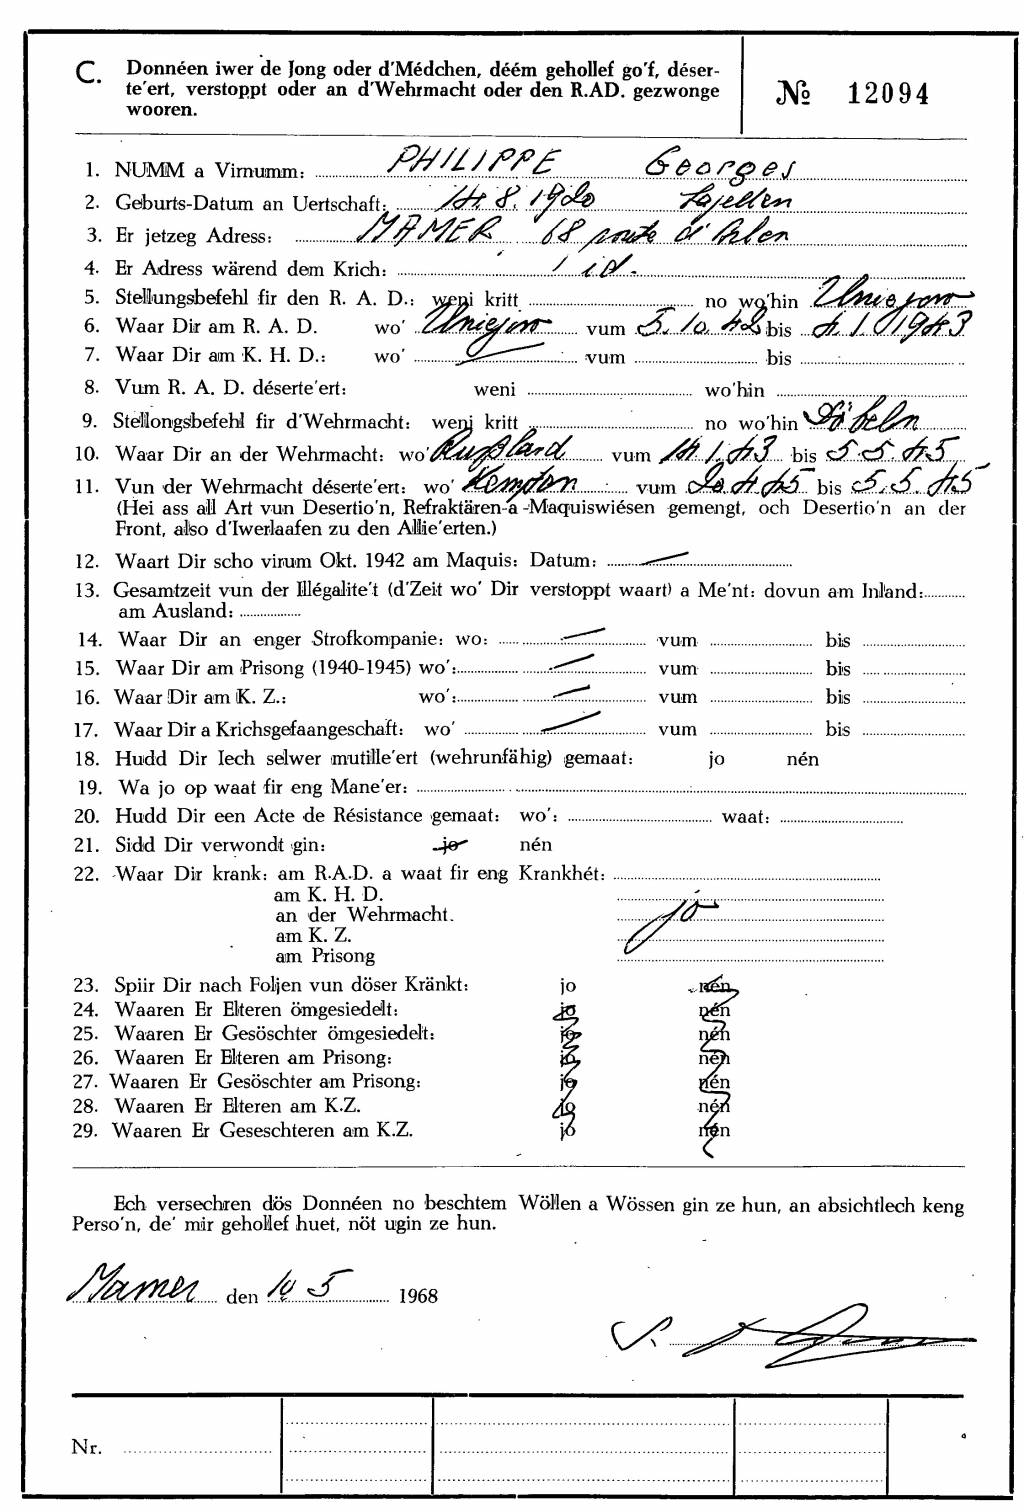 C. Donnéen iwer de Jong oder d'Médchen, déém gehollef go'f, déser-
te'ert, verstoppt oder an d'Wehrmacht oder den R.AD. gezwonge
wooren.
№ 12094
1. NUMM a Virnumm: PHILIPPE Georges
2. Geburts-Datum an Uertschaft: 14.8.1920
3. Er jetzeg Adress: MAMER 68 route d'Arlon
4. Er Adress wärend dem Krich: id.
5. Stellungsbefehl fir den R. A. D.: weni kritt no wo'hin Uniejow
6. Waar Dir am R. A. D. wo' Uniejow vum 5.10.42 bis 4.1.1943
7. Waar Dir am K. H. D.: wo' vum bis
8. Vum R. A. D. déserte'ert: weni wo'hin
9. Stellongsbefehl fir d'Wehrmacht: weni kritt no wo'hin Döbeln
10. Waar Dir an der Wehrmacht: wo' Rußland vum 14.1.43 bis 5.5.45
11. Vun der Wehrmacht déserte'ert: wo' Kempten vum 20.4.45 bis 5.5.45
(Hei ass all Art vun Desertio'n, Refraktären-a -Maquiswiésen gemengt, och Desertio'n an der
Front, also d'Iwerlaafen zu den Allie'erten.)
12. Waart Dir scho virum Okt. 1942 am Maquis: Datum: —
13. Gesamtzeit vun der Illégalite't (d'Zeit wo' Dir verstoppt waart) a Me'nt: dovun am Inland:
am Ausland:
14. Waar Dir an enger Strofkompanie: wo: — vum bis
15. Waar Dir am Prisong (1940-1945) wo': — vum bis
16. Waar Dir am K. Z.: wo': — vum bis
17. Waar Dir a Krichsgefaangeschaft: wo' — vum bis
18. Hudd Dir Iech selwer mutille'ert (wehrunfähig) gemaat: jo nén
19. Wa jo op waat fir eng Mane'er:
20. Hudd Dir een Acte de Résistance gemaat: wo': waat:
21. Sidd Dir verwondt gin: jo nén
22. Waar Dir krank: am R.A.D. a waat fir eng Krankhét:
am K. H. D.
an der Wehrmacht. jo
am K. Z.
am Prisong
23. Spiir Dir nach Foljen vun döser Kränkt: jo nén
24. Waaren Er Elteren ömgesiedelt: jo nén
25. Waaren Er Gesöschter ömgesiedelt: jo nén
26. Waaren Er Elteren am Prisong: jo nén
27. Waaren Er Gesöschter am Prisong: jo nén
28. Waaren Er Elteren am K.Z. jo nén
29. Waaren Er Geseschteren am K.Z. jo nén
Ech versechren dös Donnéen no beschtem Wöllen a Wössen gin ze hun, an absichtlech keng
Perso'n, de' mir gehollef huet, nöt ugin ze hun.
Mamer den 10.5 1968
Nr.